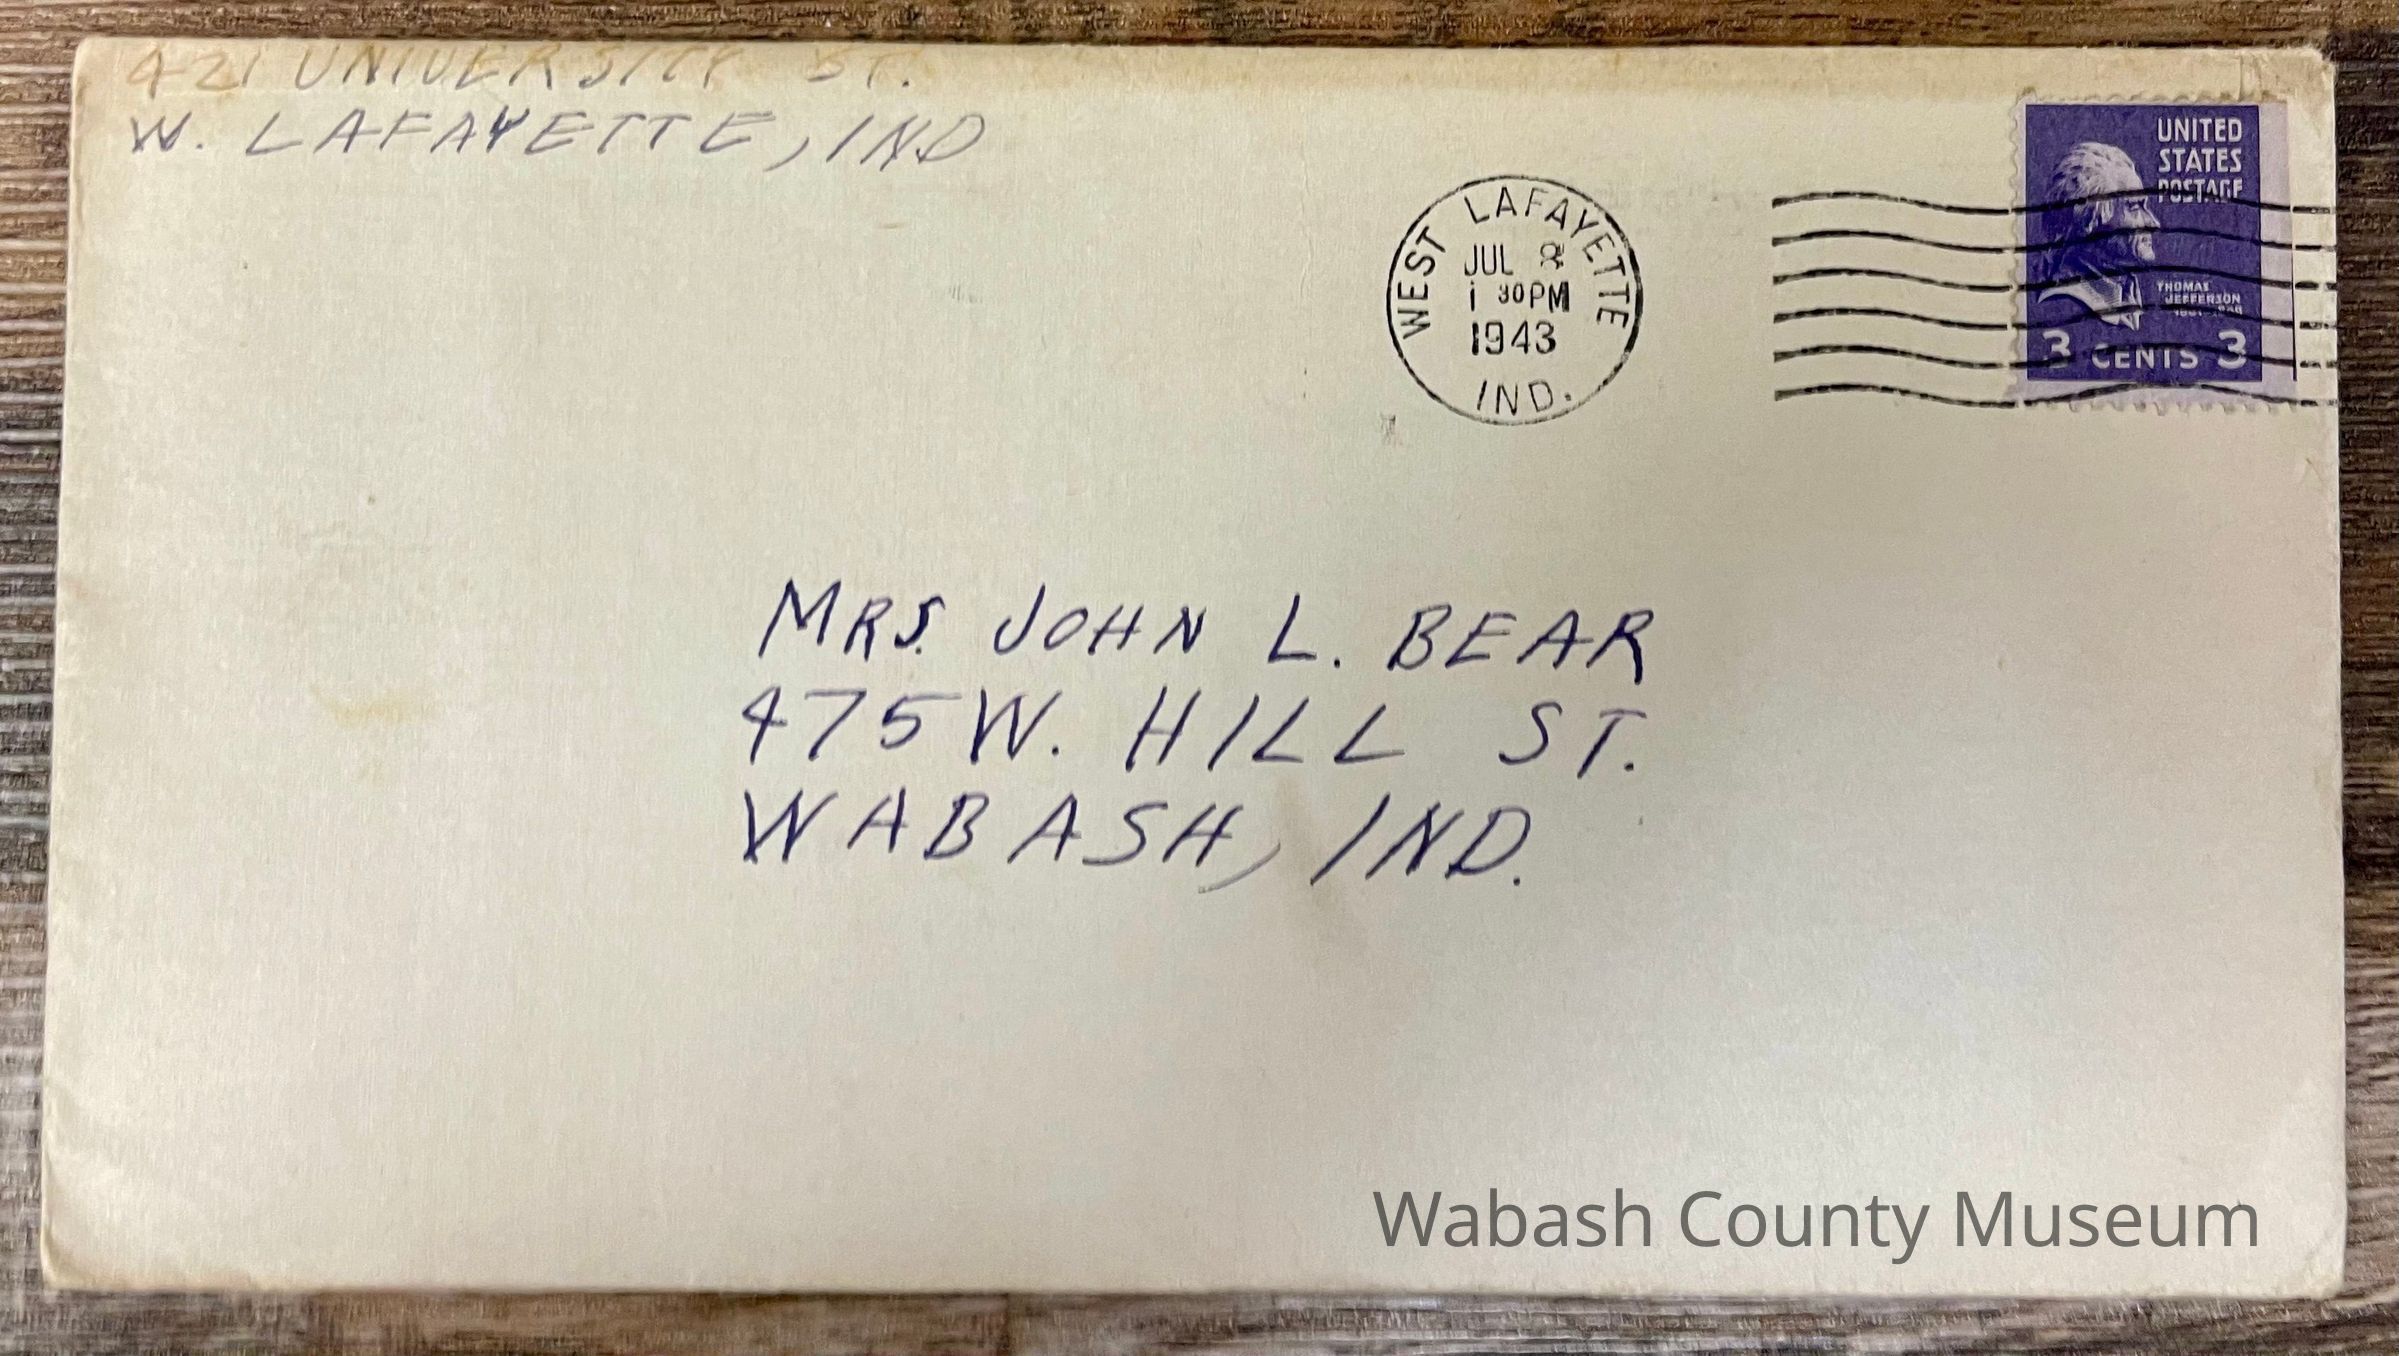 421 UNIVERSITY ST.
W. LAFAYETTE, IND
WEST LAFAYETTE
JUL 8
1 30 PM
1943
IND.
UNITED
STATES
POSTAGE
THOMAS
JEFFERSON
3 CENTS 3
MRS. JOHN L. BEAR
475 W. HILL ST.
WABASH, IND.
Wabash County Museum